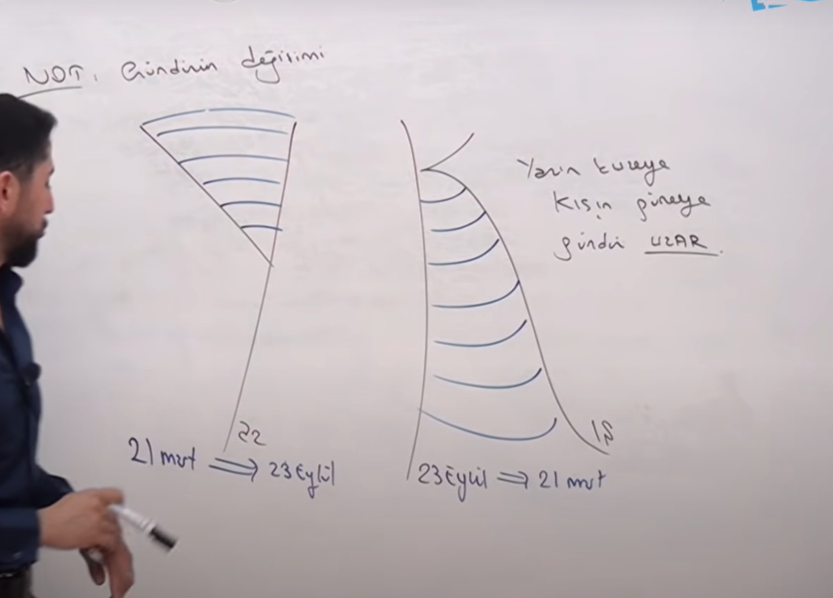 NOT: Gündüzün değişimi
Yazın kuzeye
Kışın güneye
gündüz UZAR.
21 mart ⇒ 23 Eylül
23 Eylül ⇒ 21 mart